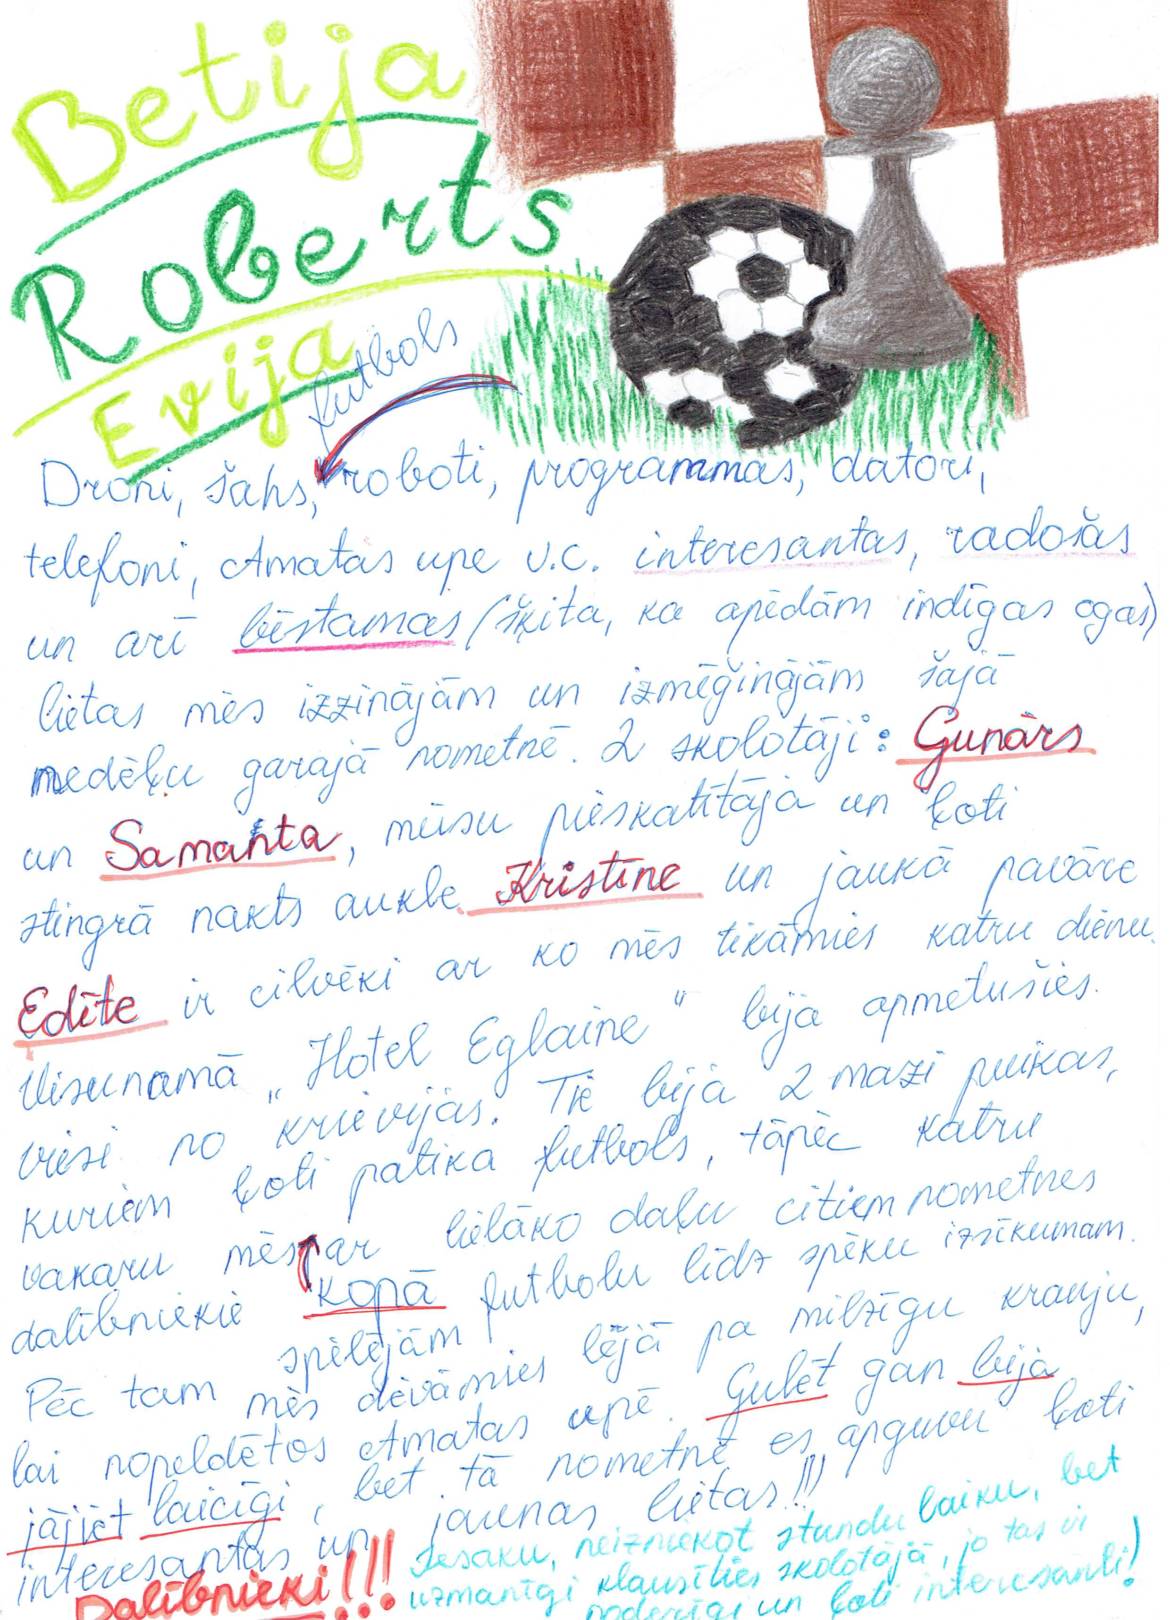 Betija
Roberts
Evija
futbols
Droni, šahs, roboti, programmas, datori,
telefoni, Amatas upe u.c. interesantas, radošas
un arī bēstamas (šķita, ka apēdām indīgas ogas)
lietas mēs izzinājām un izmēģinājām šajā
nedēļu garajā nometnē. 2 skolotāji: Gunārs
un Samanta, mūsu pieskatītāja un ļoti
stingrā nakts aukle Kristīne un jaukā pavāre
Edīte ir cilvēki ar ko mēs tikāmies katru dienu.
Viesunamā „Hotel Eglaine" bija apmetušies
viesi no krievijas. Tie bija 2 mazi puikas,
kuriem ļoti patika futbols, tāpēc katru
vakaru mēs ar lielāko daļu citiem nometnes
dalībniekie kopā futbolu līdz spēku izsīkumam.
spēlējām
Pēc tam mēs devāmies lējā pa milzīgu krauju,
lai nopeldētos Amatas upē. Gulēt gan bija
jājiet laicīgi, bet tā nometnē es apguvu ļoti
interesantas un jaunas lietas!!!
Dalībnieki!!! Iesaku, neizniekot stundu laiku, bet
uzmanīgi klausīties skolotājā, jo tas ir
noderīgi un ļoti interesanti!